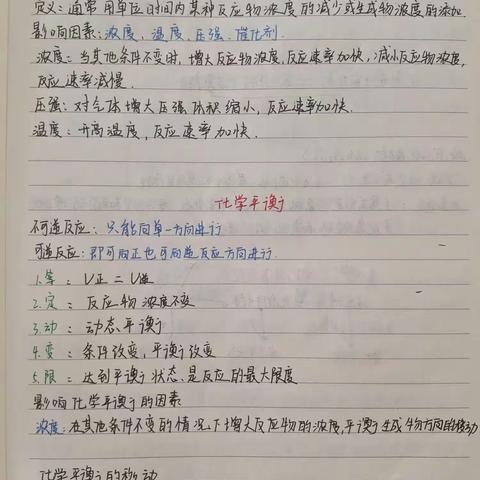 定义:通常用单位时间内某种反应物浓度的减少或生成物浓度的添加.
影响因素:浓度、温度、压强、催化剂.
浓度:当其他条件不变时,增大反应物浓度,反应速率加快,减小反应物浓度,
反应速率减慢.
压强:对气体增大压强体积缩小,反应速率加快.
温度:升高温度,反应速率加快.
化学平衡
不可逆反应:只能向单一方向进行
可逆反应:即可向正也可向逆反应方向进行.
1.等:V正=V逆
2.定:反应物浓度不变
3.动:动态平衡
4.变:条件改变,平衡改变
5.限:达到平衡状态是反应的最大限度
影响化学平衡的因素
浓度:在其他条件不变的情况下增大反应物的浓度,平衡生成物方向的移动
化学平衡的移动